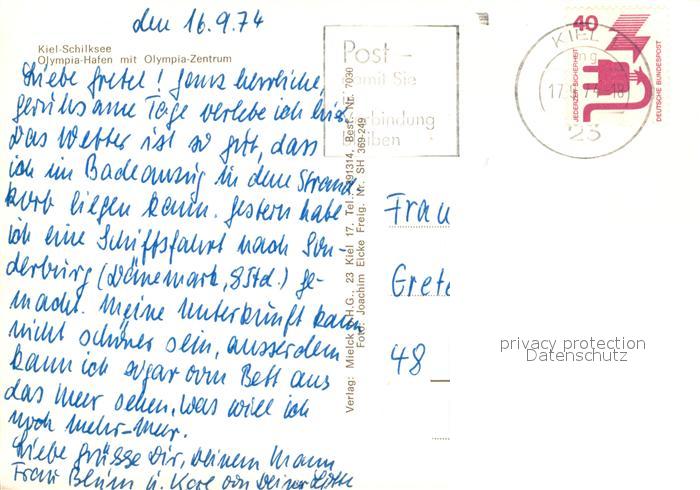 den 16.9.74
Kiel-Schilksee
Olympia-Hafen mit Olympia-Zentrum
Liebe Gretel! Ganz herrliche,
geruhsame Tage verlebe ich hier.
Das Wetter ist so gut, dass
ich im Badeanzug in dem Strand
korb liegen kann. Gestern habe
ich eine Schiffsfahrt nach Son-
derburg (Dänemark, 8 Std.) ge-
macht. Meine Unterkunft kann
nicht schöner sein, ausserdem
kann ich sogar vom Bett aus
das Meer sehen, was will ich
noch mehr-Meer.
Liebe Grüsse Dir, Deinem Mann,
Frau Blum u. Karl von Deiner Lotte
Verlag: Mielck o.H.G., 23 Kiel 17. Tel.: 391314, Best.-Nr. 7030
Foto: Joachim Eicke Freig. Nr. SH 369-249
Post –
damit Sie
Verbindung
bleiben
KIEL 1
17.9.74-18
23
40
JEDERZEIT SICHERHEIT
DEUTSCHE BUNDESPOST
Frau
Grete
48
privacy protection
Datenschutz